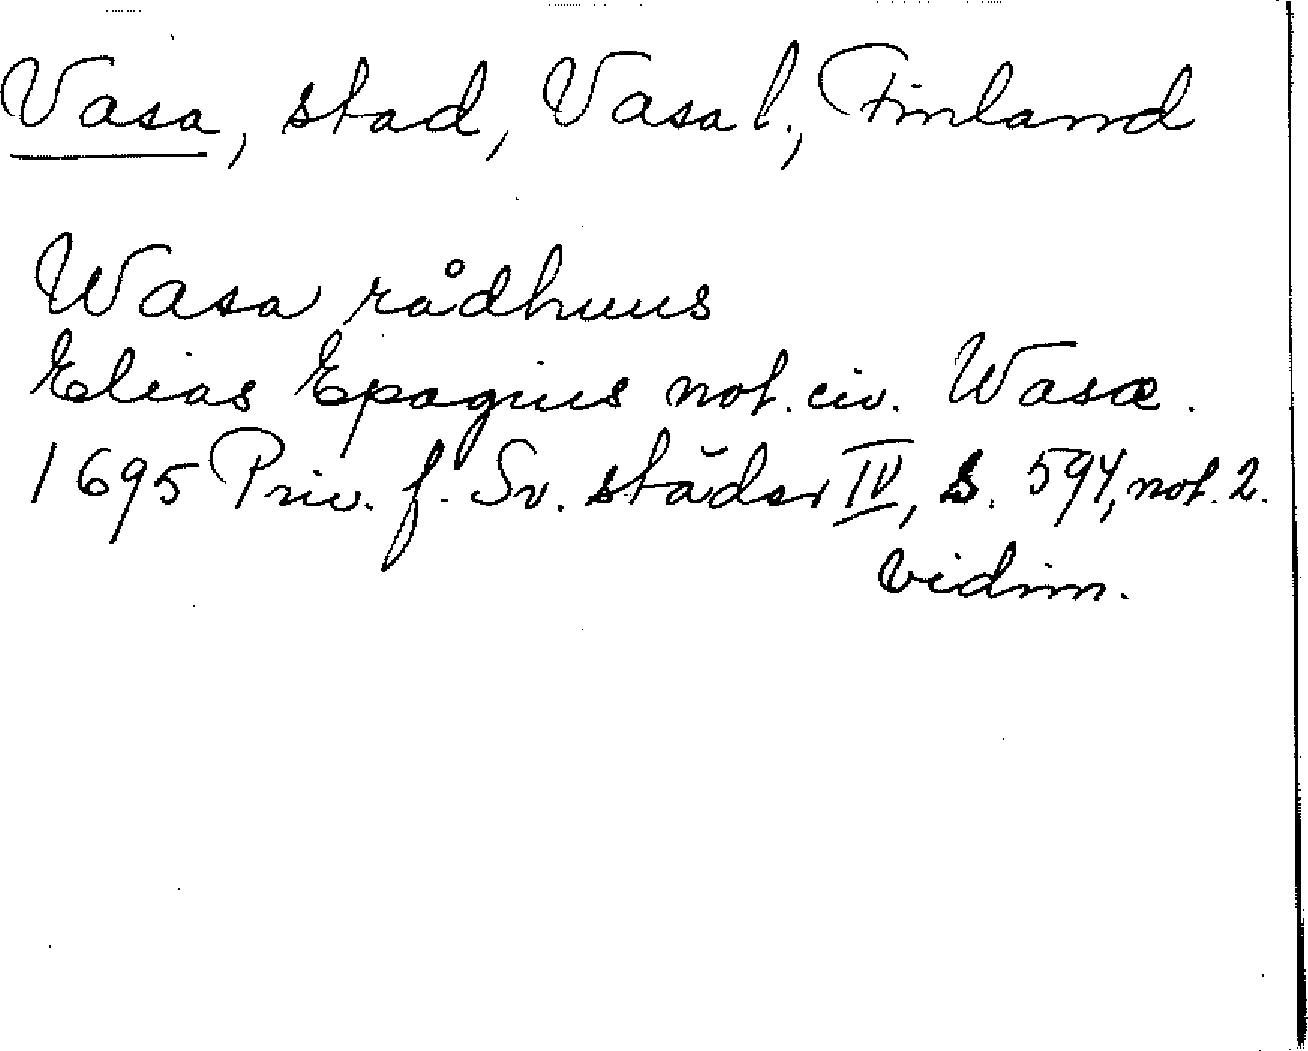 Vasa, stad, Vasa l., Finland
Wasa rådhuus
Elias Epagius not. civ. Wasæ.
1695 Priv. f. Sv. städer IV, s. 594, not. 2.
vidim.